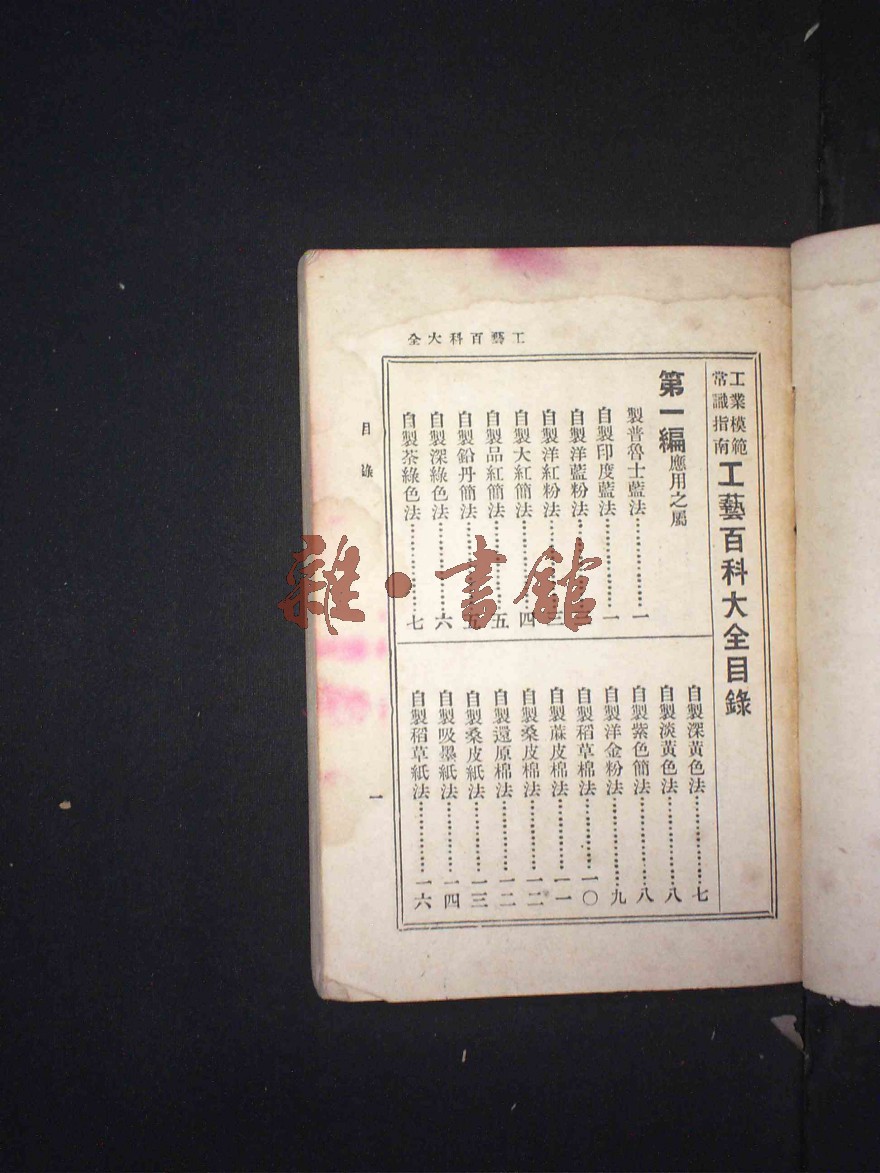 工藝百科大全
工業模範
常識指南
工藝百科大全目錄
第一編 應用之屬
製普魯士藍法…………一
自製印度藍法…………一
自製洋藍粉法…………二
自製洋紅粉法…………三
自製大紅簡法…………四
自製品紅簡法…………五
自製鉛丹簡法…………五
自製深綠色法…………六
自製茶綠色法…………七
自製深黃色法…………七
自製淡黃色法…………八
自製紫色簡法…………八
自製洋金粉法…………九
自製稻草棉法…………一〇
自製蔴皮棉法…………一一
自製桑皮棉法…………一二
自製還原棉法…………一二
自製桑皮紙法…………一三
自製吸墨紙法…………一四
自製稻草紙法…………一六
目錄
一
雜·書館